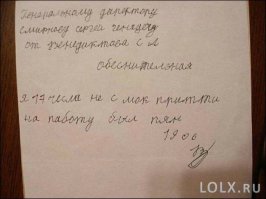 Генеральному директору
смирнову сергей генадечу
от Бенедиктова С Л
обеснительная
я 17 числа не с мок притти
на работу был пян
19 06
LOLX.RU